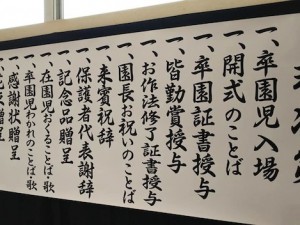 一、卒園児入場
一、開式のことば
一、卒園証書授与
一、皆勤賞授与
一、お作法修了証書授与
一、園長お祝いのことば
一、来賓祝辞
一、保護者代表謝辞
一、記念品贈呈
一、在園児おくることば・歌
一、卒園児わかれのことば・歌
感謝状贈呈